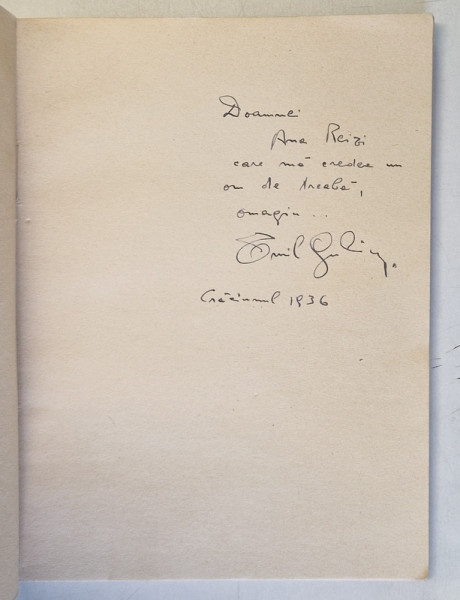 Doamnei
Ana Reizi
care mă credea un
om de treabă,
omagiu ..
Emil Gulian.
Crăciunul 1936